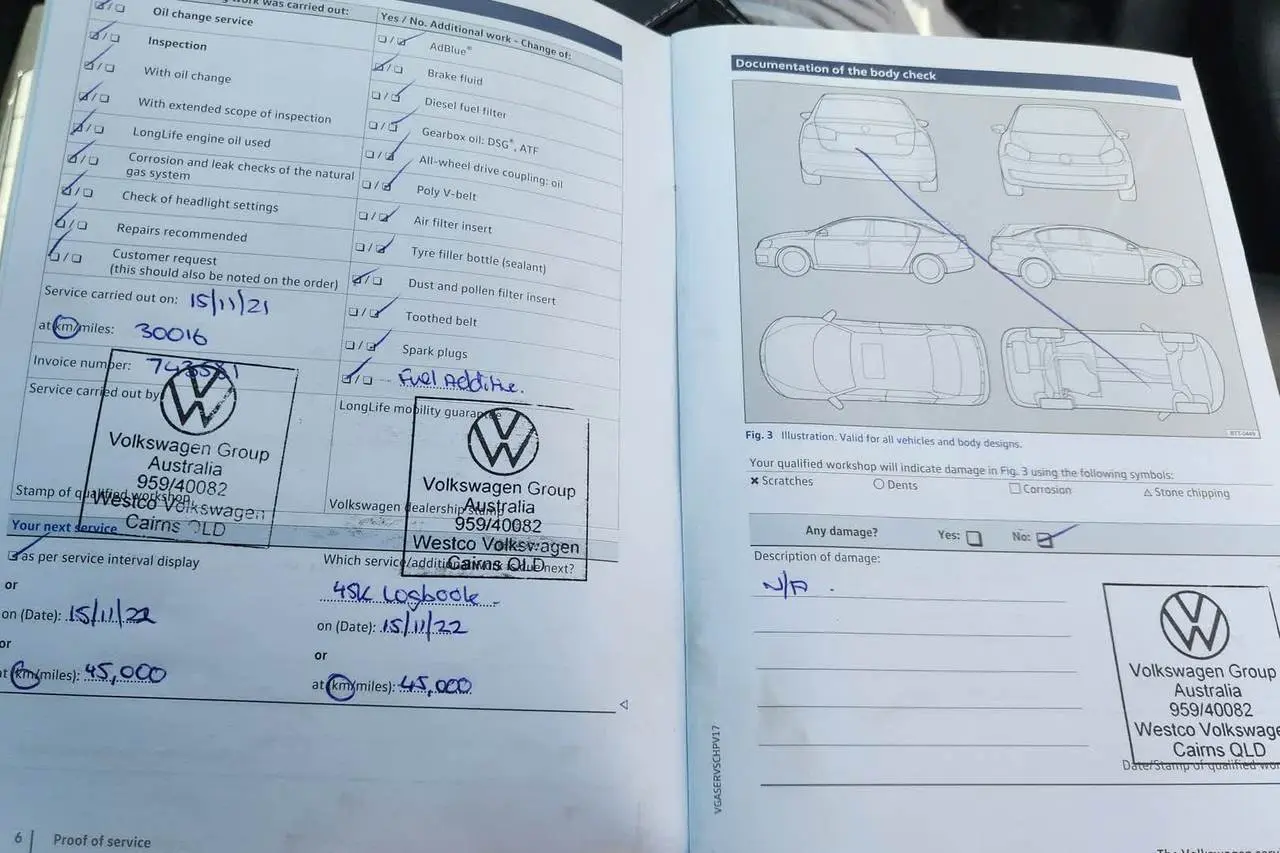 work was carried out:
Oil change service
Inspection
With oil change
With extended scope of inspection
LongLife engine oil used
Corrosion and leak checks of the natural
gas system
Check of headlight settings
Repairs recommended
Customer request
(this should also be noted on the order)
Service carried out on: 15/11/21
at km/miles: 30016
Invoice number: 743581
Service carried out by
Volkswagen Group
Australia
959/40082
Westco Volkswagen
Cairns QLD
Stamp of qualified workshop
Yes / No. Additional work – Change of:
AdBlue®
Brake fluid
Diesel fuel filter
Gearbox oil: DSG®, ATF
All-wheel drive coupling: oil
Poly V-belt
Air filter insert
Tyre filler bottle (sealant)
Dust and pollen filter insert
Toothed belt
Spark plugs
Fuel Additive.
LongLife mobility guarantee
Volkswagen Group
Australia
959/40082
Westco Volkswagen
Cairns QLD
Volkswagen dealership stamp
Your next service
as per service interval display
or
on (Date): 15/11/22
or
at km/miles): 45,000
Which service/additional work is due next?
45K Logbook
on (Date): 15/11/22
or
at (km/miles): 45,000
6 | Proof of service
Documentation of the body check
Fig. 3 Illustration. Valid for all vehicles and body designs.
Your qualified workshop will indicate damage in Fig. 3 using the following symbols:
× Scratches ○ Dents □ Corrosion △ Stone chipping
Any damage? Yes: No:
Description of damage:
N/A.
Volkswagen Group
Australia
959/40082
Westco Volkswage
Cairns QLD
Date/Stamp of qualified wor
VGASERVSCHPV17
The Volkswagen serv